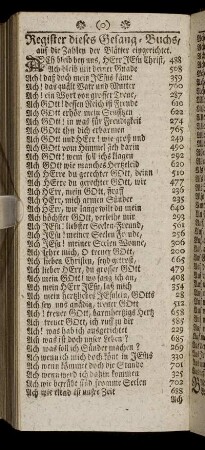 Register dieses Gesang-Buchs,
auf die Zahlen der Blätter eingerichtet.
Ach bleib bey uns, HErr JEsu Christ, 488
Ach bleib mit deiner Gnade 508
Ach! daß doch mein JEsus käme 359
Ach! das quält Mark und Blätter 700
Ach! ein Wort von grosser Treu, 287
Ach GOtt! dessen Reich ist Freude 610
Ach GOtt erhör mein Seufftzen 622
Ach GOtt! in was für Freudigkeit 274
Ach GOtt thu dich erbarmen 765
Ach GOtt und HErr! wie groß und 249
Ach GOtt vom Himmel sieh darin 490
Ach GOtt! wem soll ichs klagen 582
Ach GOtt wie manches Hertzeleid 620
Ach HErre du gerechter GOtt, denn 561
Ach HErre du gerechter GOtt, wir 477
Ach HErr, mein GOtt, straff 236
Ach HErr, mich armen Sünder 235
Ach HErr, wie lange wilt du mein 640
Ach höchster GOtt, verleihe mir 293
Ach JEsu! liebster Seelen-Freund, 501
Ach JEsu! meiner Seelen Freude, 256
Ach JEsu! meiner Seelen Wonne, 306
Ach kehre mich, O treuer GOtt, 665
Ach lieben Christen, seyd getrost, 665
Ach lieber HErr, du grosser GOtt 479
Ach mein GOtt! wo fang ich an, 408
Ach mein HErr JEsu, laß mich 354
Ach mein hertzliebes JEsulein, GOtts 28
Ach sey uns gnädig, treuer GOtt 512
Ach! treuer GOtt, barmhertzigs Hertz 658
Ach! treuer GOtt, ich ruff zu dir 585
Ach! was hab ich ausgerichtet 229
Ach was ist doch unser Leben? 685
Ach was soll ich Sünder machen? 269
Ach wenn ich mich doch könt in JEsus 330
Ach wenn kömmet doch die Stunde 701
Ach wenn werd ich dahin kommen 325
Ach wie betrübt sind fromme Seelen 702
Ach wie elend ist unsre Zeit 688
Ach